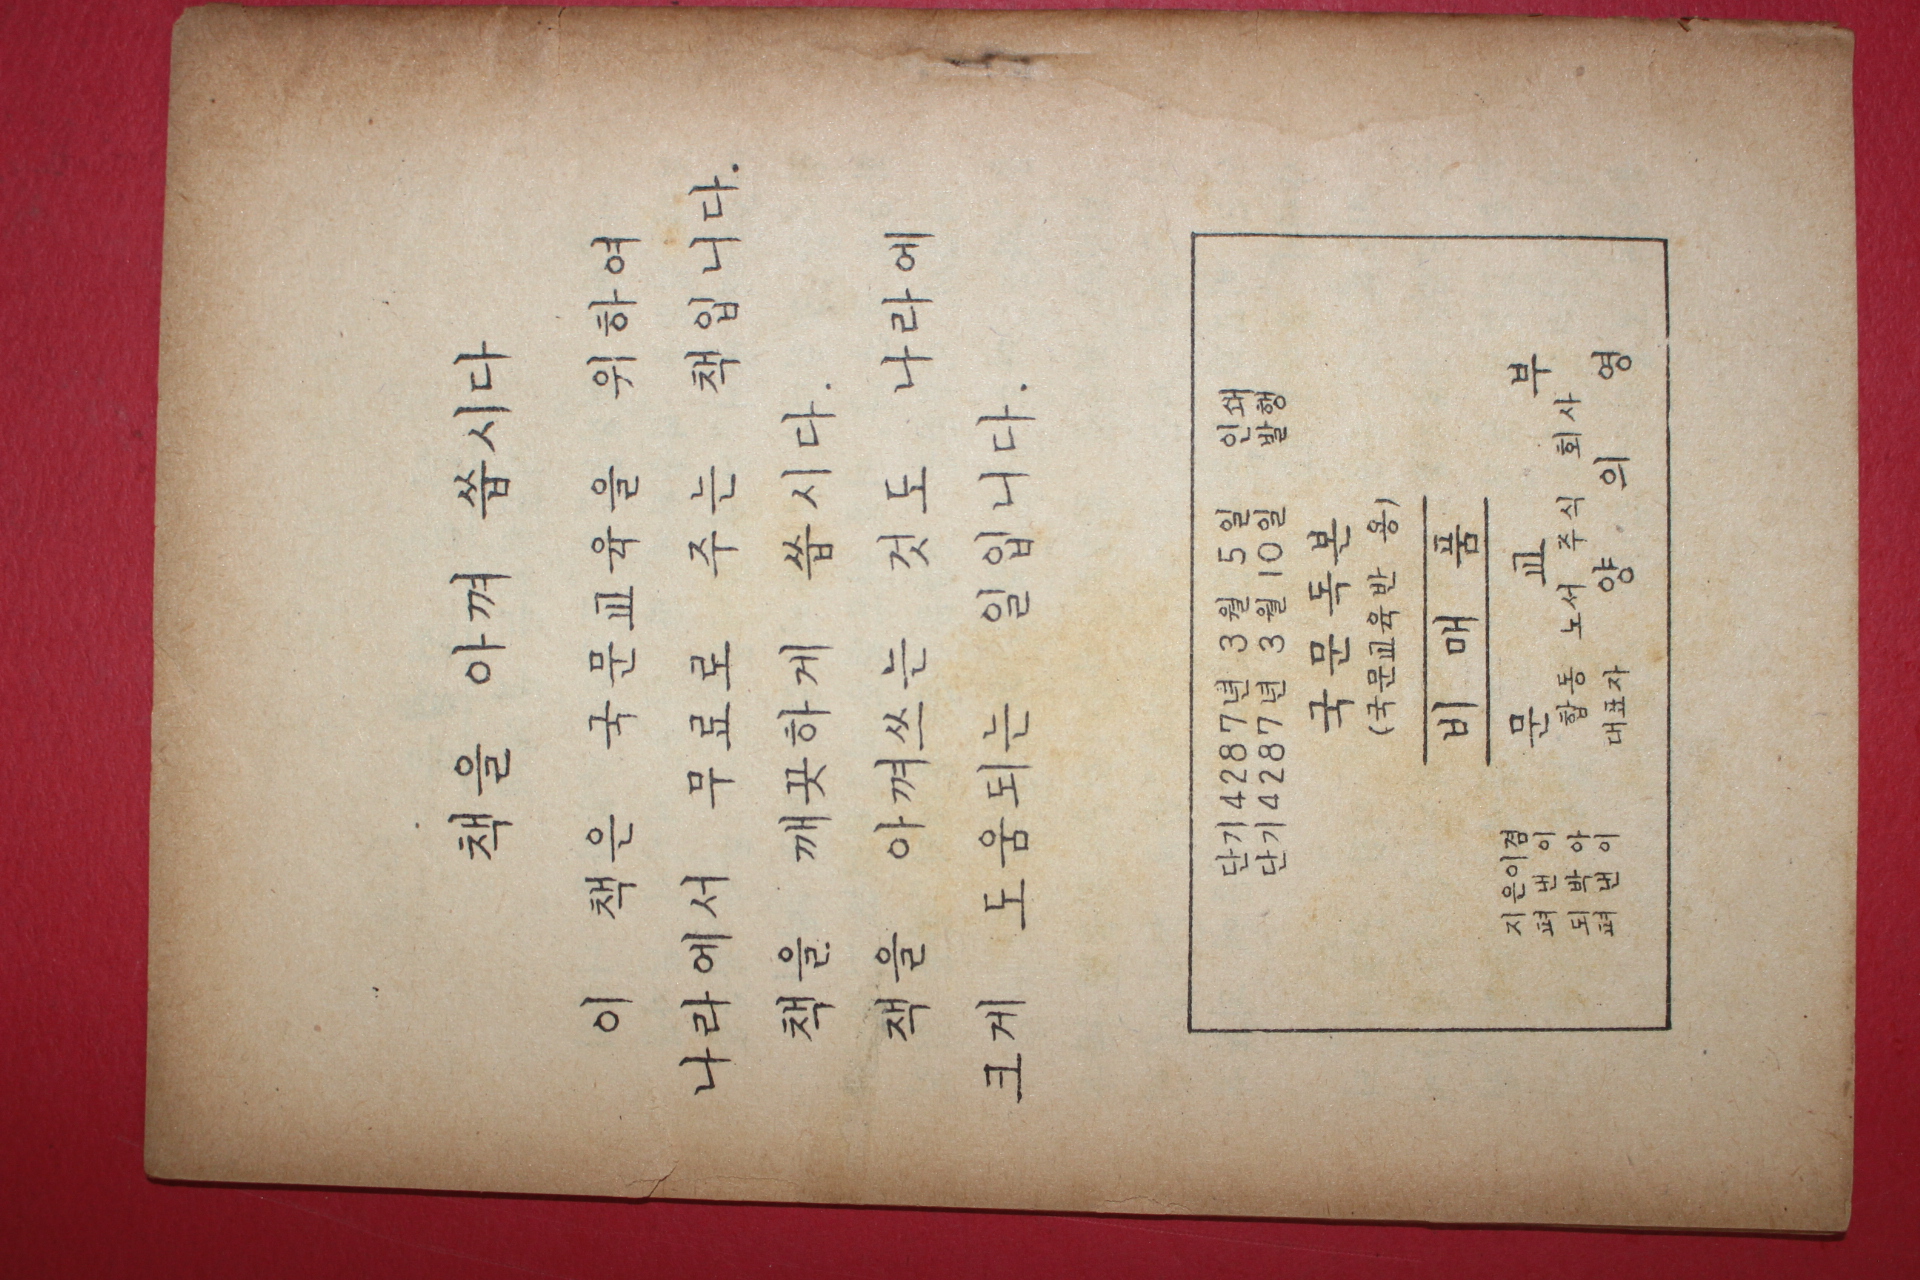 책을 아껴 씁시다
이 책은 국문교육을 위하여
나라에서 무료로 주는 책입니다.
책을 깨끗하게 씁시다.
책을 아껴쓰는 것도 나라에
크게 도움되는 일입니다.
단기4287년 3월 5일 인쇄
단기4287년 3월10일 발행
국문독본
(국문교육반 용)
비매품
지은이겸
펴낸이 문교부
되박아 합동 노서 주식 회사
펴낸이 대표자 양의영